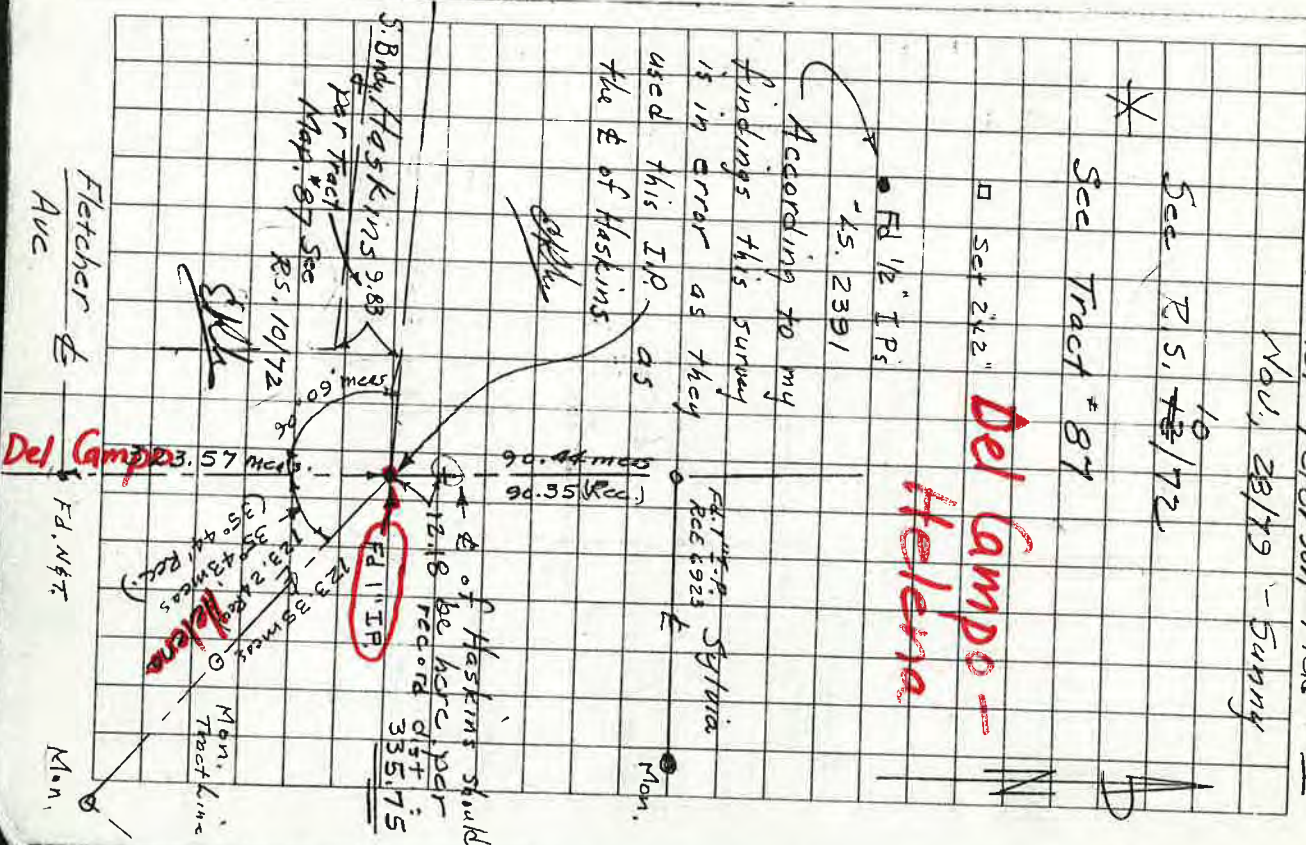 Nov, 28/79 - Sunny
See R.S. 10/72
See Tract #87
□ Set 2"x2"
Del Campo -
Helena
Fd 1/2" IPs
-45.2391
According to my
findings this survey
is in error as they
used this I.P. as
the ℄ of Haskins.
Fd. 1" I.P.
RCE 6923
Sylvia
℄
Mon.
90.44 meas
90.35 (Rec.)
℄ of Haskins should
be here per
record dist:
335.75
12.18
Fd 1" IP.
S. Bndy Haskins 9.88
℄
per Tract
Map #87 See
RS. 10/72
.09 meas
323.57 meas.
Del Campo
123.35 meas
123.24 Rec
35° 43' meas
(35° 44' Rec.)
Helena
Mon.
Tract Line
Fletcher ℄
Ave
Fd. N&T.
Mon.